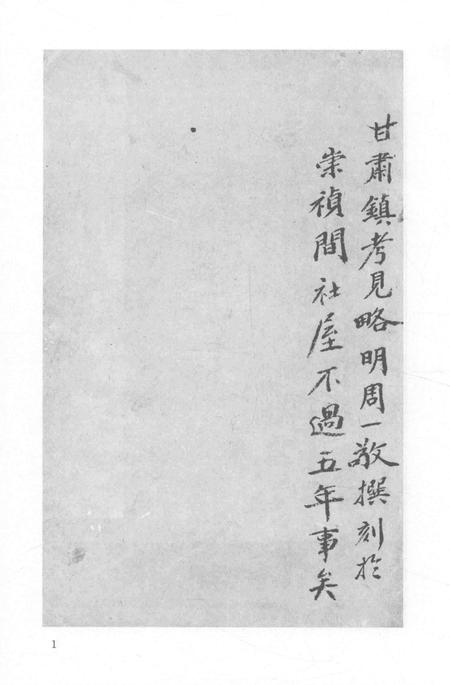 甘肅鎮考見略明周一敬撰刻於
崇禎間社屋不過五年事矣
1